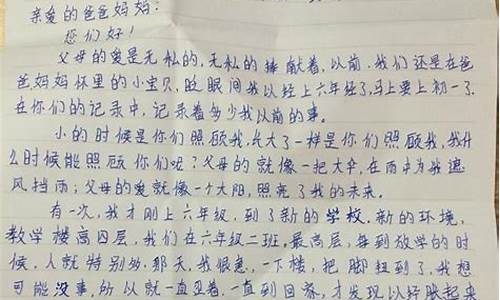 亲爱的爸爸妈妈：
您们好！
父母的爱是无私的，无私的奉献着，以前，我们还是在爸
爸妈妈怀里的小宝贝，眨眼间我以经上六年级了，马上要上初一了。
在你们的记录中，记录着多少我以前的事。
小的时候是你们照顾我，长大了一样是你们照顾我，我什
么时候能照顾你们呢？父母的就像一把大伞，在雨中为我遮
风挡雨；父母的爱就像一个大阳，照亮了我的未来。
有一次，我才刚上六年级，到了新的学校，新的环境，
教学楼高四层，我们在六年级二班，最高层，每到放学的时
候，人就特别多，那天，我很急，一下楼，把脚扭到了，我想
可能没事，所以就一直忍着，一直到回家，才发现以经肿起来